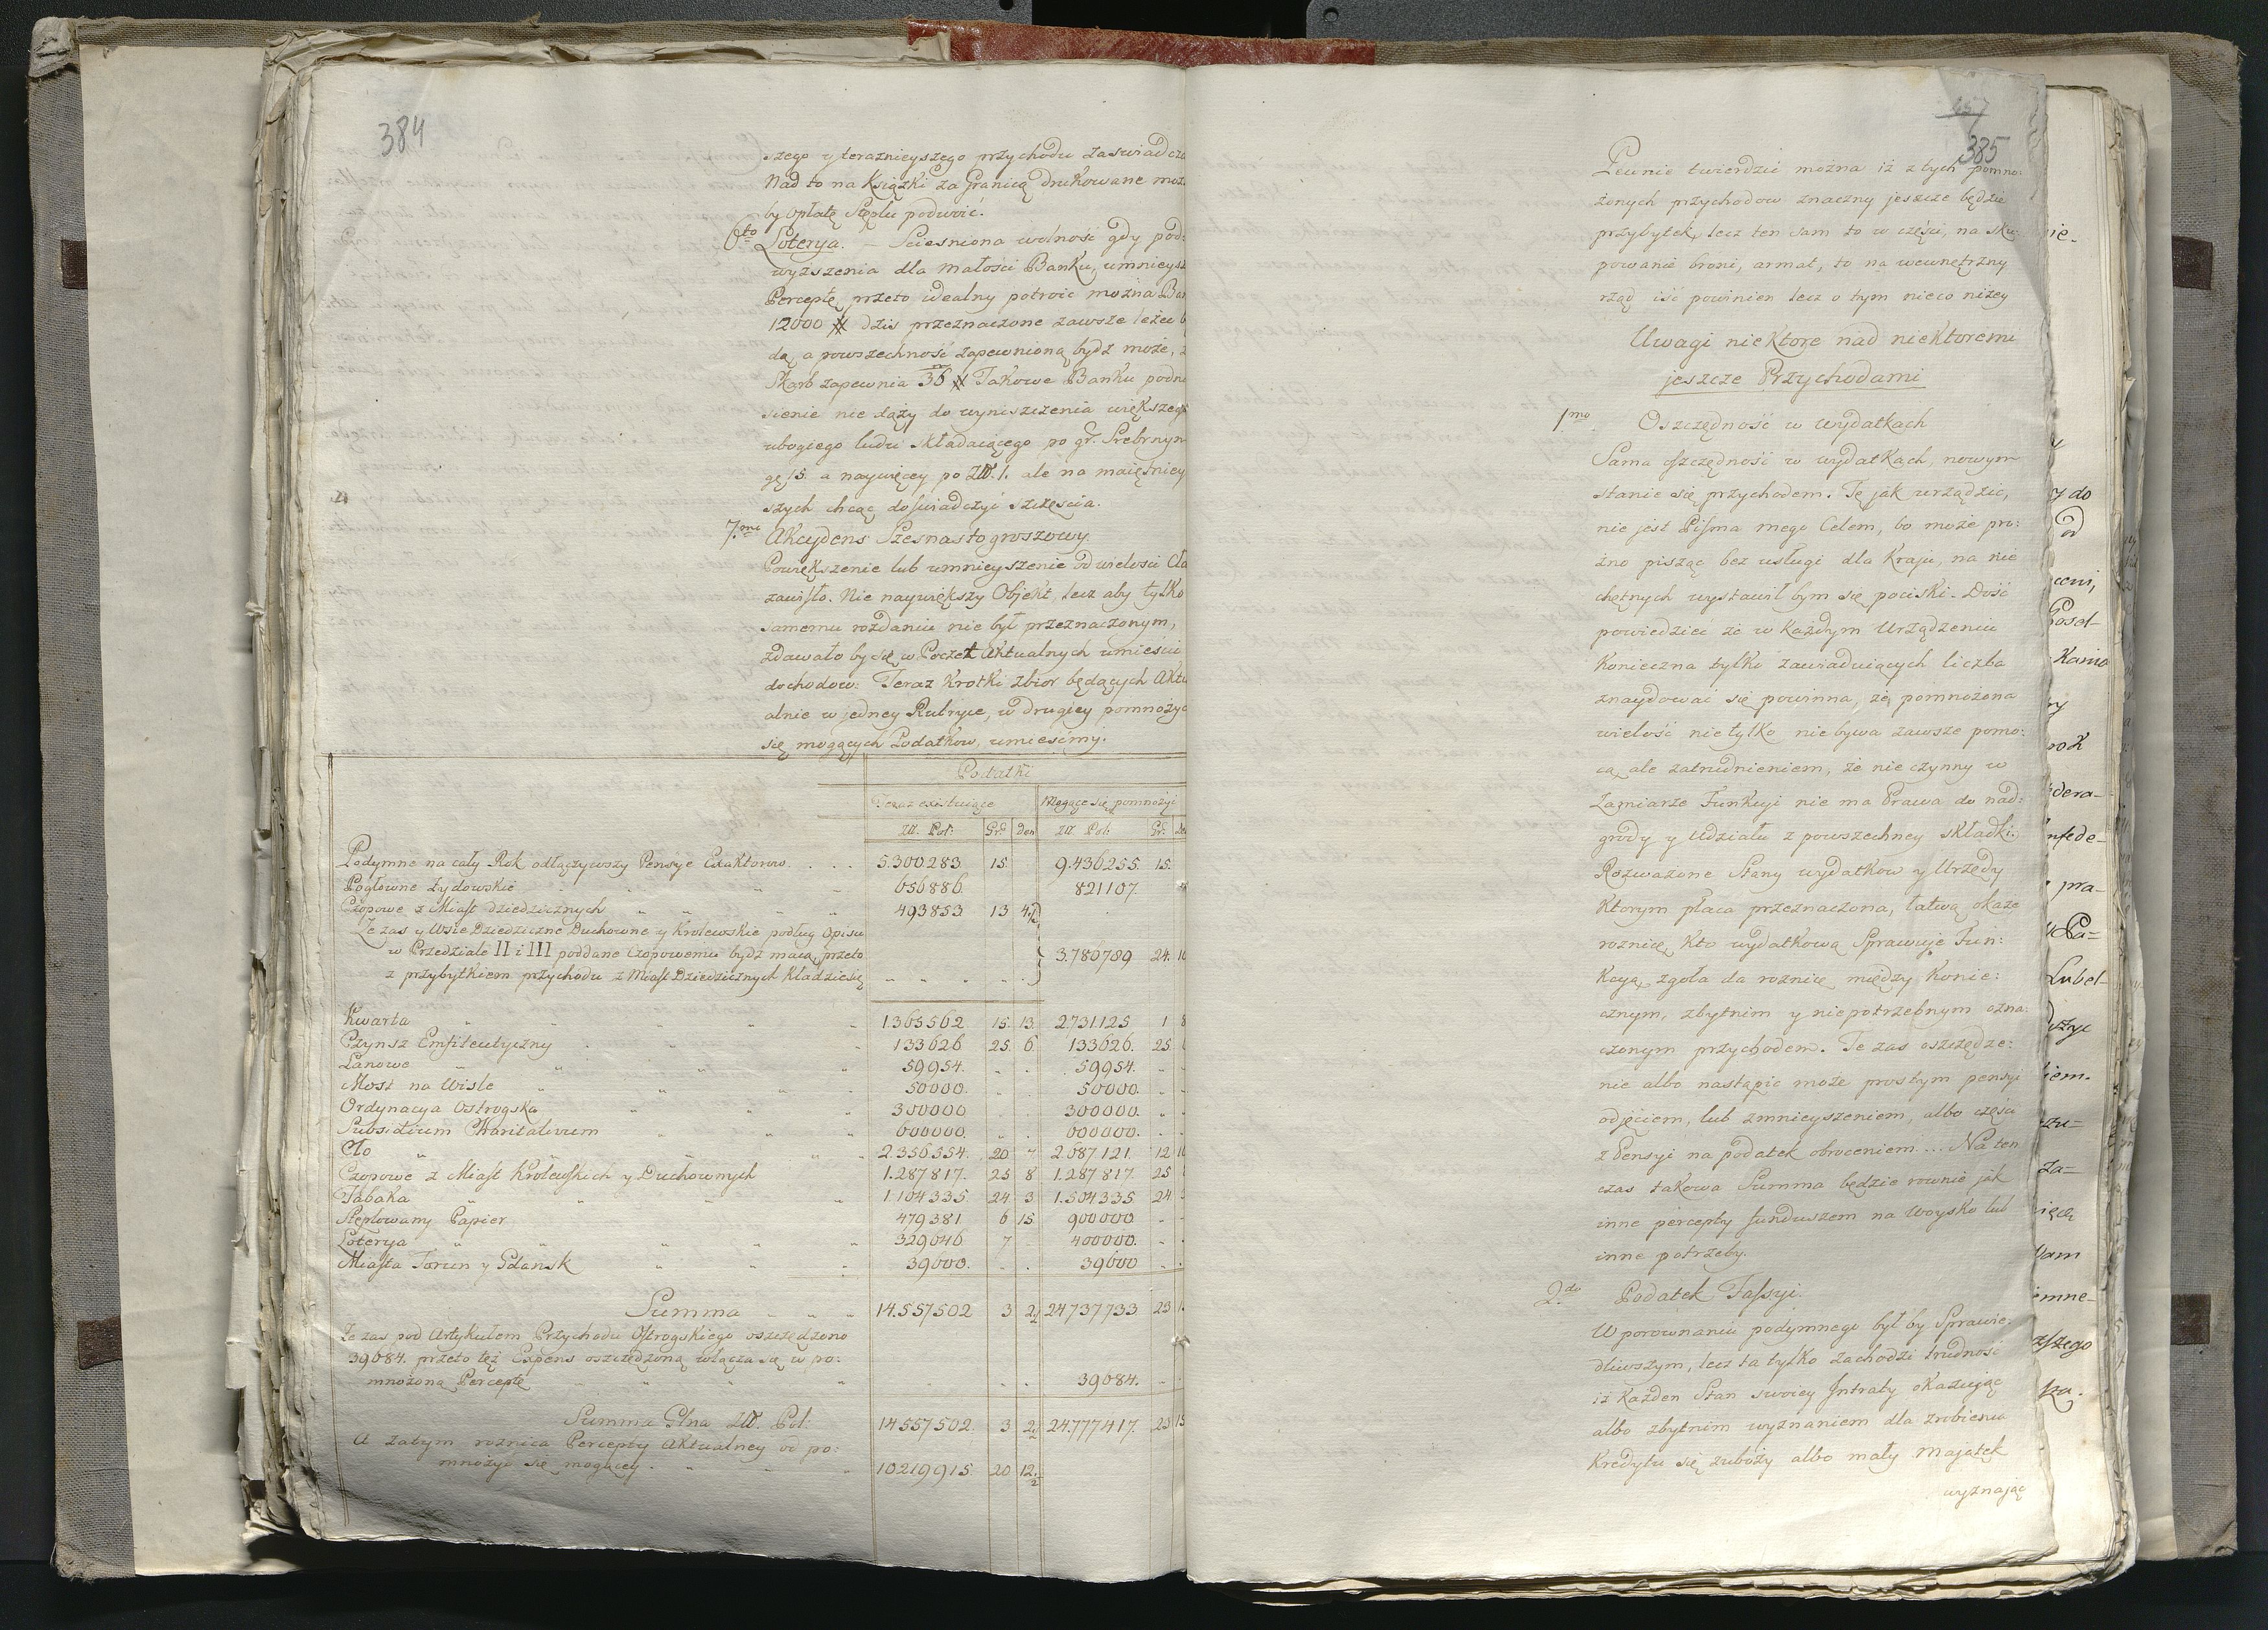 384
szego y teraznieyszego przychodu zaswiadcza
Nad to na Książki za Granicą drukowane moż
by opłatę Stęplu podwoić.
6to Loterya. – Scieśniona wolność gdy pod:
wyższenia dla małości Banku, umnieysz
Perceptę, przeto idealny potroić można Ba
12000 # dziś przeznaczone zawsze leżeć b
dą, a powszechność zapewnioną bydź może, z
Skarb zapewnia 36 # Takowe Banku podn
sienie nie dąży do wyniszczenia większego
ubogiego ludu składaiącego po gr. Srebrnym
gę 15. a naywięcey po Złt. 1. ale na maiętniey
szych chcąc doświadczyć szczęścia.
7mo Akcydens Szesnastogroszowy.
Powiększenie lub umnieyszenie od wielości Cła
zawisło. Nie naywiększy Objekt, lecz aby tylko
samemu rozdaniu nie był przeznaczonym,
zdawało by się w Poczet Aktualnych umieścić
dochodow: Teraz krotki zbior będących Aktu
alnie w jedney Rubryce, w drugiey pomnożyć
się mogących Podatkow, umieśćmy.
Podatki
Teraz existuiące Mogące się pomnożyć
Złł. Pol: Gr: Den Złł Pol: Gr: De
Podymne na cały Rok odłączywszy Pensye Exaktorow 5.300283 15. 9.436255. 15.
Pogłowne Żydowskie 656886. 821107.
Czopowe z Miast dziedzicznych 493853 13 4½
Że zaś y Wsie Dziedziczne Duchowne y Krolewskie podług Opisu
w Przedziale II i III poddane Czopowemu bydź maią, przeto
z przybytkiem przychodu z Miast Dziedzicznych kładzie się 3.786789 24. 10
Kwarta 1.365562 15. 13. 2731.125 1 8
Czynsz Emfiteutyczny 133626 25. 6 133626. 25.
Łanowe 59954. 59954.
Most na Wisle 50000. 50000.
Ordynacya Ostrogska 300000 300000.
Subsidium Charitativum 600000. 600000.
Cło 2.356.554. 20 7 2.687.121. 12 10
Czopowe z Miast Krolewskich y Duchownych 1.287817. 25 8 1.287817. 25
Tabaka 1.104335. 24 3. 1.504335. 24
Stęplowany Papier 479381 6 15. 900000
Loterya 329046 7 400000.
Miasta Toruń y Gdańsk 39600. 39600
Summa 14.557502 3 2½ 24737733 23
Że zaś pod Artykułem Przychodu Ostrogskiego oszczędzono
39684. przeto też Expens oszczędzoną włącza się w po:
mnożoną Perceptę 39684.
Summa Glna Złł. Pol: 14.557502. 3 2½ 24.777417. 23 15
A zatym roznica Percepty Aktualney od po:
mnożyć się mogącey. 10219915. 20 12½
385
Pewnie twierdzić można iż z tych pomno:
żonych przychodow znaczny jeszcze będzie
przybytek, lecz ten sam to w części, na sku:
powanie broni, armat, to na wewnętrzny
rząd iść powinien lecz o tym nieco niżey
Uwagi niektore nad niektoremi
jeszcze Przychodami
1mo Oszczędność w wydatkach
Sama oszczędność w wydatkach, nowym
stanie się przychodem. Tę jak urządzić,
nie jest Pisma mego Celem, bo może pro:
żno pisząc bez usługi dla Kraju, na nie
chętnych wystawił bym się pociski. Dość
powiedzieć że w każdym Urządzeniu
Konieczna tylko zawiaduiących liczba
znaydować się powinna, że pomnożona
wielość nie tylko nie bywa zawsze pomo:
cą, ale zatrudnieniem, że nie czynny w
Zamiarze Funkcyi nie ma Prawa do nad:
grody y Udziału z powszechney składki.
Rozważone Stany wydatkow y Urzędy
ktorym płaca przeznaczona, łatwą okażę
roznicę, kto wydatkową Sprawuje Fun:
kcyą, zgoła da roznicę między konie:
cznym, zbytnim y niepotrzebnym ozna:
czonym przychodem. Te zaś oszczędze:
nie albo nastąpić może prostym pensyi
odjęciem, lub zmnieyszeniem, albo części
z Pensyi na podatek obroceniem.... Na ten
czas takowa Summa będzie rownie jak
inne percepty funduszem na Woysko lub
inne potrzeby.
2do Podatek Tassyi.
W porownaniu podymnego był by Sprawie:
dliwszym, lecz ta tylko zachodzi trudność
iż każden Stan swoiey Intraty okazując
albo zbytnim wyznaniem dla zrobienia
Kredytu się zuboży albo mały majątek
wyznając